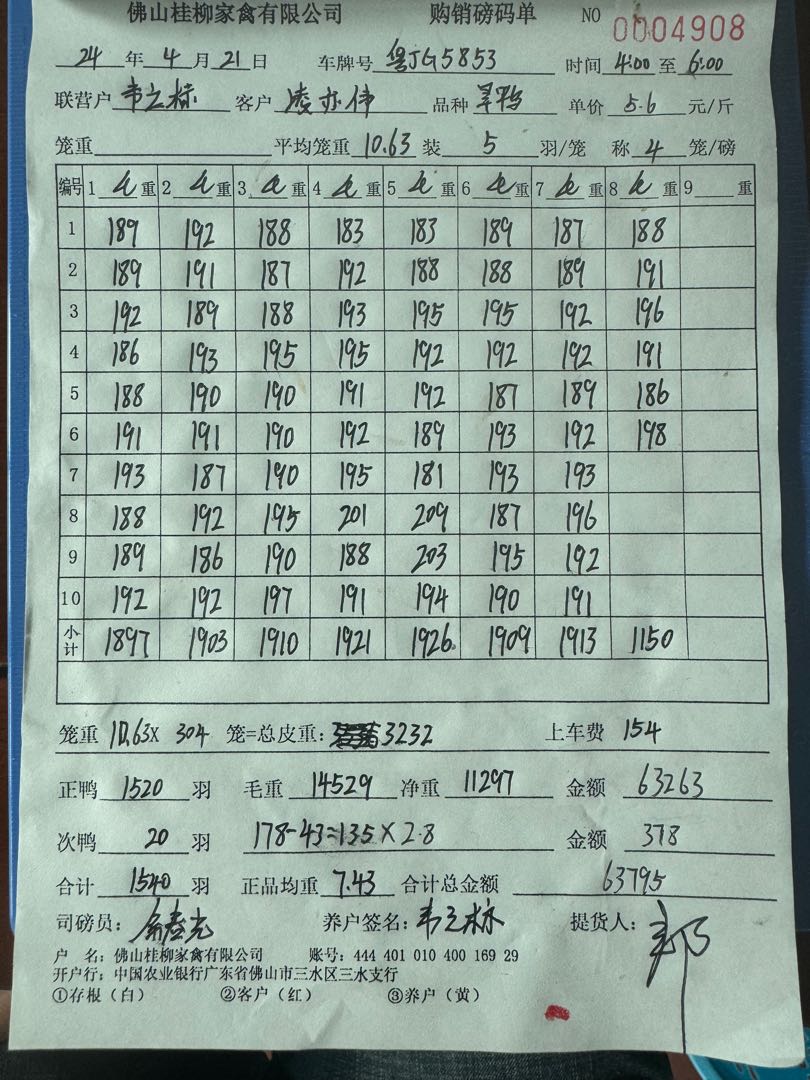 佛山桂柳家禽有限公司 购销磅码单 NO 0004908
24 年 4 月 21 日 车牌号 粤JG5853 时间 4:00 至 6:00
联营户 韦立标 客户 凌亦伟 品种 旱鸭 单价 5.6 元/斤
笼重 平均笼重 10.63 装 5 羽/笼 称 4 笼/磅
编号 1 毛 重 2 毛 重 3 毛 重 4 毛 重 5 毛 重 6 毛 重 7 毛 重 8 毛 重 9 重
1 189 192 188 183 183 189 187 188
2 189 191 187 192 188 188 189 191
3 192 189 188 193 195 195 192 196
4 186 193 195 195 192 192 192 191
5 188 190 190 191 192 187 189 186
6 191 191 190 192 189 193 192 198
7 193 187 190 195 181 193 193
8 188 192 195 201 209 187 196
9 189 186 190 188 203 195 192
10 192 192 197 191 194 190 191
小计 1897 1903 1910 1921 1926 1909 1913 1150
笼重 10.63X 304 笼=总皮重: 3232 上车费 154
正鸭 1520 羽 毛重 14529 净重 11297 金额 63263
次鸭 20 羽 178-43=135×2.8 金额 378
合计 1540 羽 正品均重 7.43 合计总金额 63795
司磅员: 养户签名: 韦立标 提货人: 郭
户 名: 佛山桂柳家禽有限公司 账号: 444 401 010 400 169 29
开户行: 中国农业银行广东省佛山市三水区三水支行
①存根（白） ②客户（红） ③养户（黄）